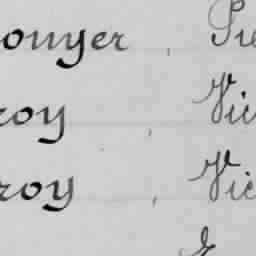 onyer , Pie
roy , Vic
roy , Vic